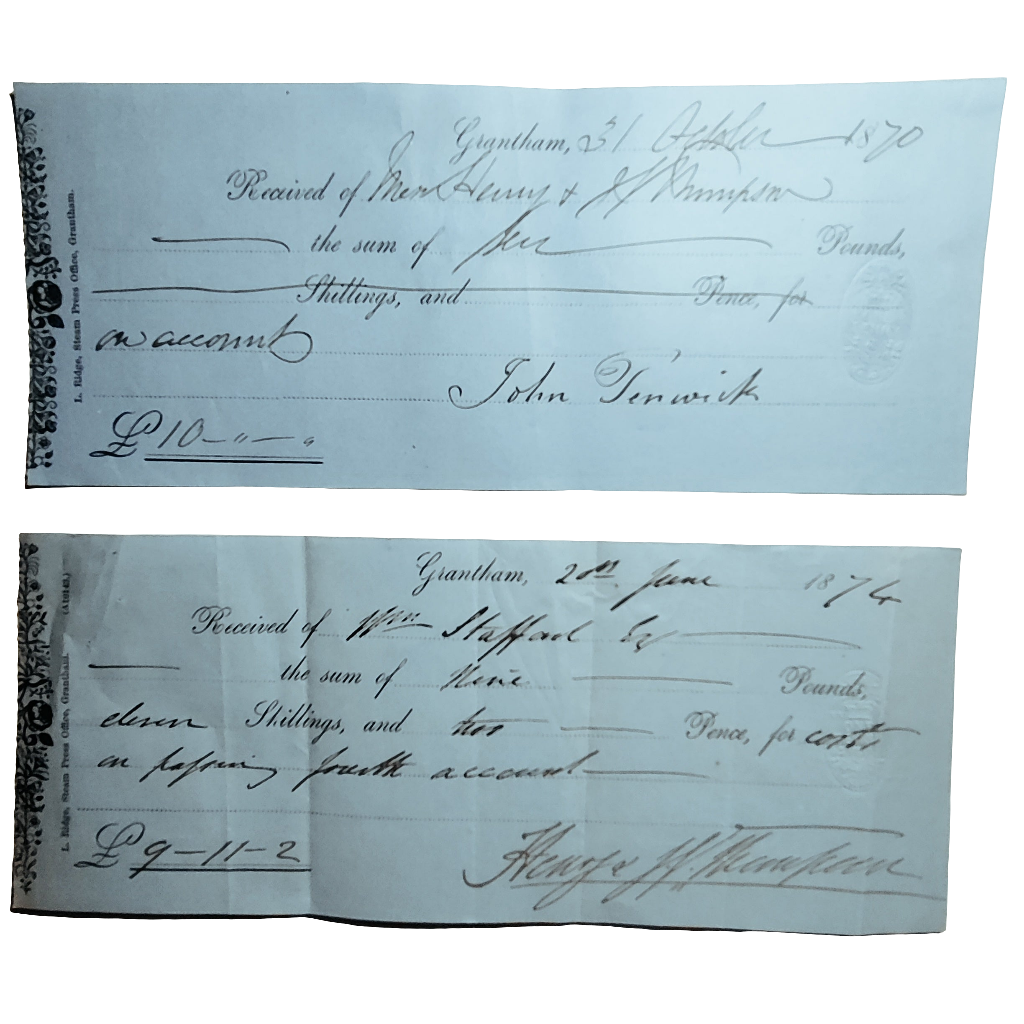 Grantham, 31 October 1870
Received of Messrs Henry & H Thimpson
the sum of Ten Pounds,
Shillings, and Pence, for
on account
John Fenwick
£10-"-"
L. Ridge, Steam Press Office, Grantham.
Grantham, 20th June 1874
Received of Wm Stafford Esq
the sum of Nine Pounds,
eleven Shillings, and two Pence, for costs
on passing fourth account
£9-11-2
Henry & H. Thimpson
L. Ridge, Steam Press Office, Grantham.